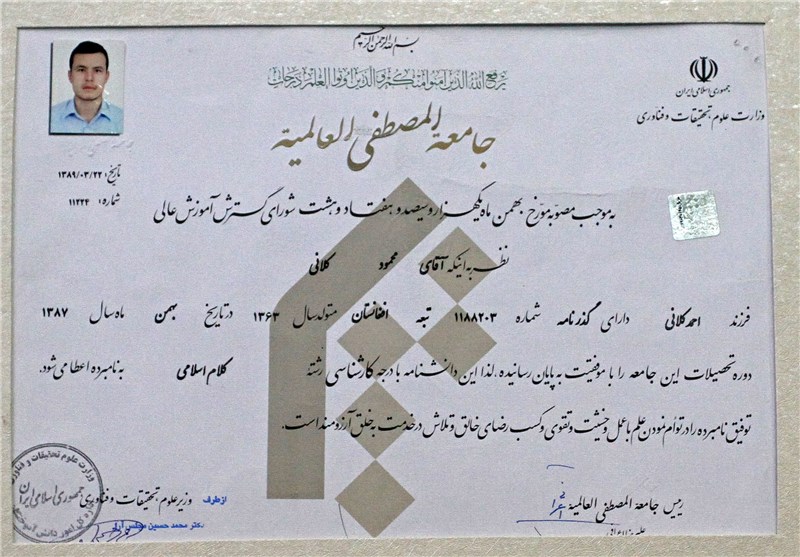 بسم الله الرحمن الرحیم
یرفع الله الذین آمنوا منکم و الذین اوتوا العلم درجات
جمهوری اسلامی ایران
وزارت علوم، تحقیقات و فنآوری
جامعة المصطفی العالمیة
تاریخ: ۱۳۸۹/۰۳/۲۲
شماره: ۱۱۲۲۴
به موجب مصوبه مورخ بهمن ماه یکهزار و سیصد و هفتاد و هشت شورای گسترش آموزش عالی
نظر به اینکه آقای محمود کلانی
فرزند احمد کلانی دارای گذرنامه شماره ۱۱۸۸۲۰۳ تبعه افغانستان متولد سال ۱۳۶۳ در تاریخ بهمن ماه سال ۱۳۸۷
دوره تحصیلات این جامعه را با موفقیت به پایان رسانیده، لذا این دانشنامه با درجه کارشناسی رشته کلام اسلامی به نامبرده اعطا می‌شود.
توفیق نامبرده را در توأم نمودن علم با عمل و خشیت و تقوی و کسب رضای خالق و تلاش در خدمت به خلق آرزومند است.
رییس جامعة المصطفی العالمیة
از طرف وزیر علوم، تحقیقات و فنآوری
دکتر محمد حسین مجلس آرا
وزارت علوم تحقیقات و فنآوری
جمهوری اسلامی ایران